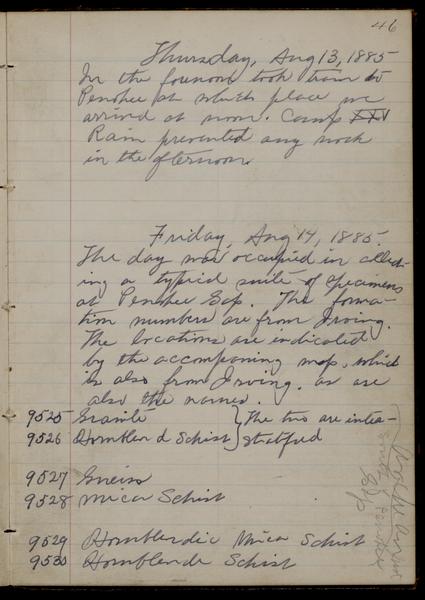 46
Thursday, Aug 13, 1885
In the forenoon took train to
Penokee at which place we
arrived at noon. Camp XXV
Rain prevented any work
in the afternoon.
Friday, Aug 14, 1885.
The day was occupied in collect-
ing a typical suite of specimens
at Penokee Gap. The forma-
tion numbers are from Irving.
The locations are indicated
by the accompaning map, which
is also from Irving, as are
also the names.
9525 Granite } The two are inter-
9526 Hornblend Schist } stratified
9527 Gneiss
9528 Mica Schist
9529 Hornblendic Mica Schist
9530 Hornblende Schist
Penokee
Gap